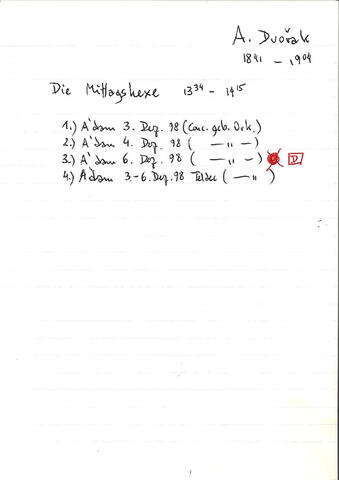 A. Dvořak
1841 - 1904
Die Mittagshexe 13³⁴ - 14¹⁵
1.) A'dam 3. Dez. 98 (Conc. geb. Ork.)
2.) A'dam 4. Dez. 98 ( —„— )
3.) A'dam 6. Dez. 98 ( —„— ) D
4.) A'dam 3.-6. Dez. 98 Teldec ( —„ )